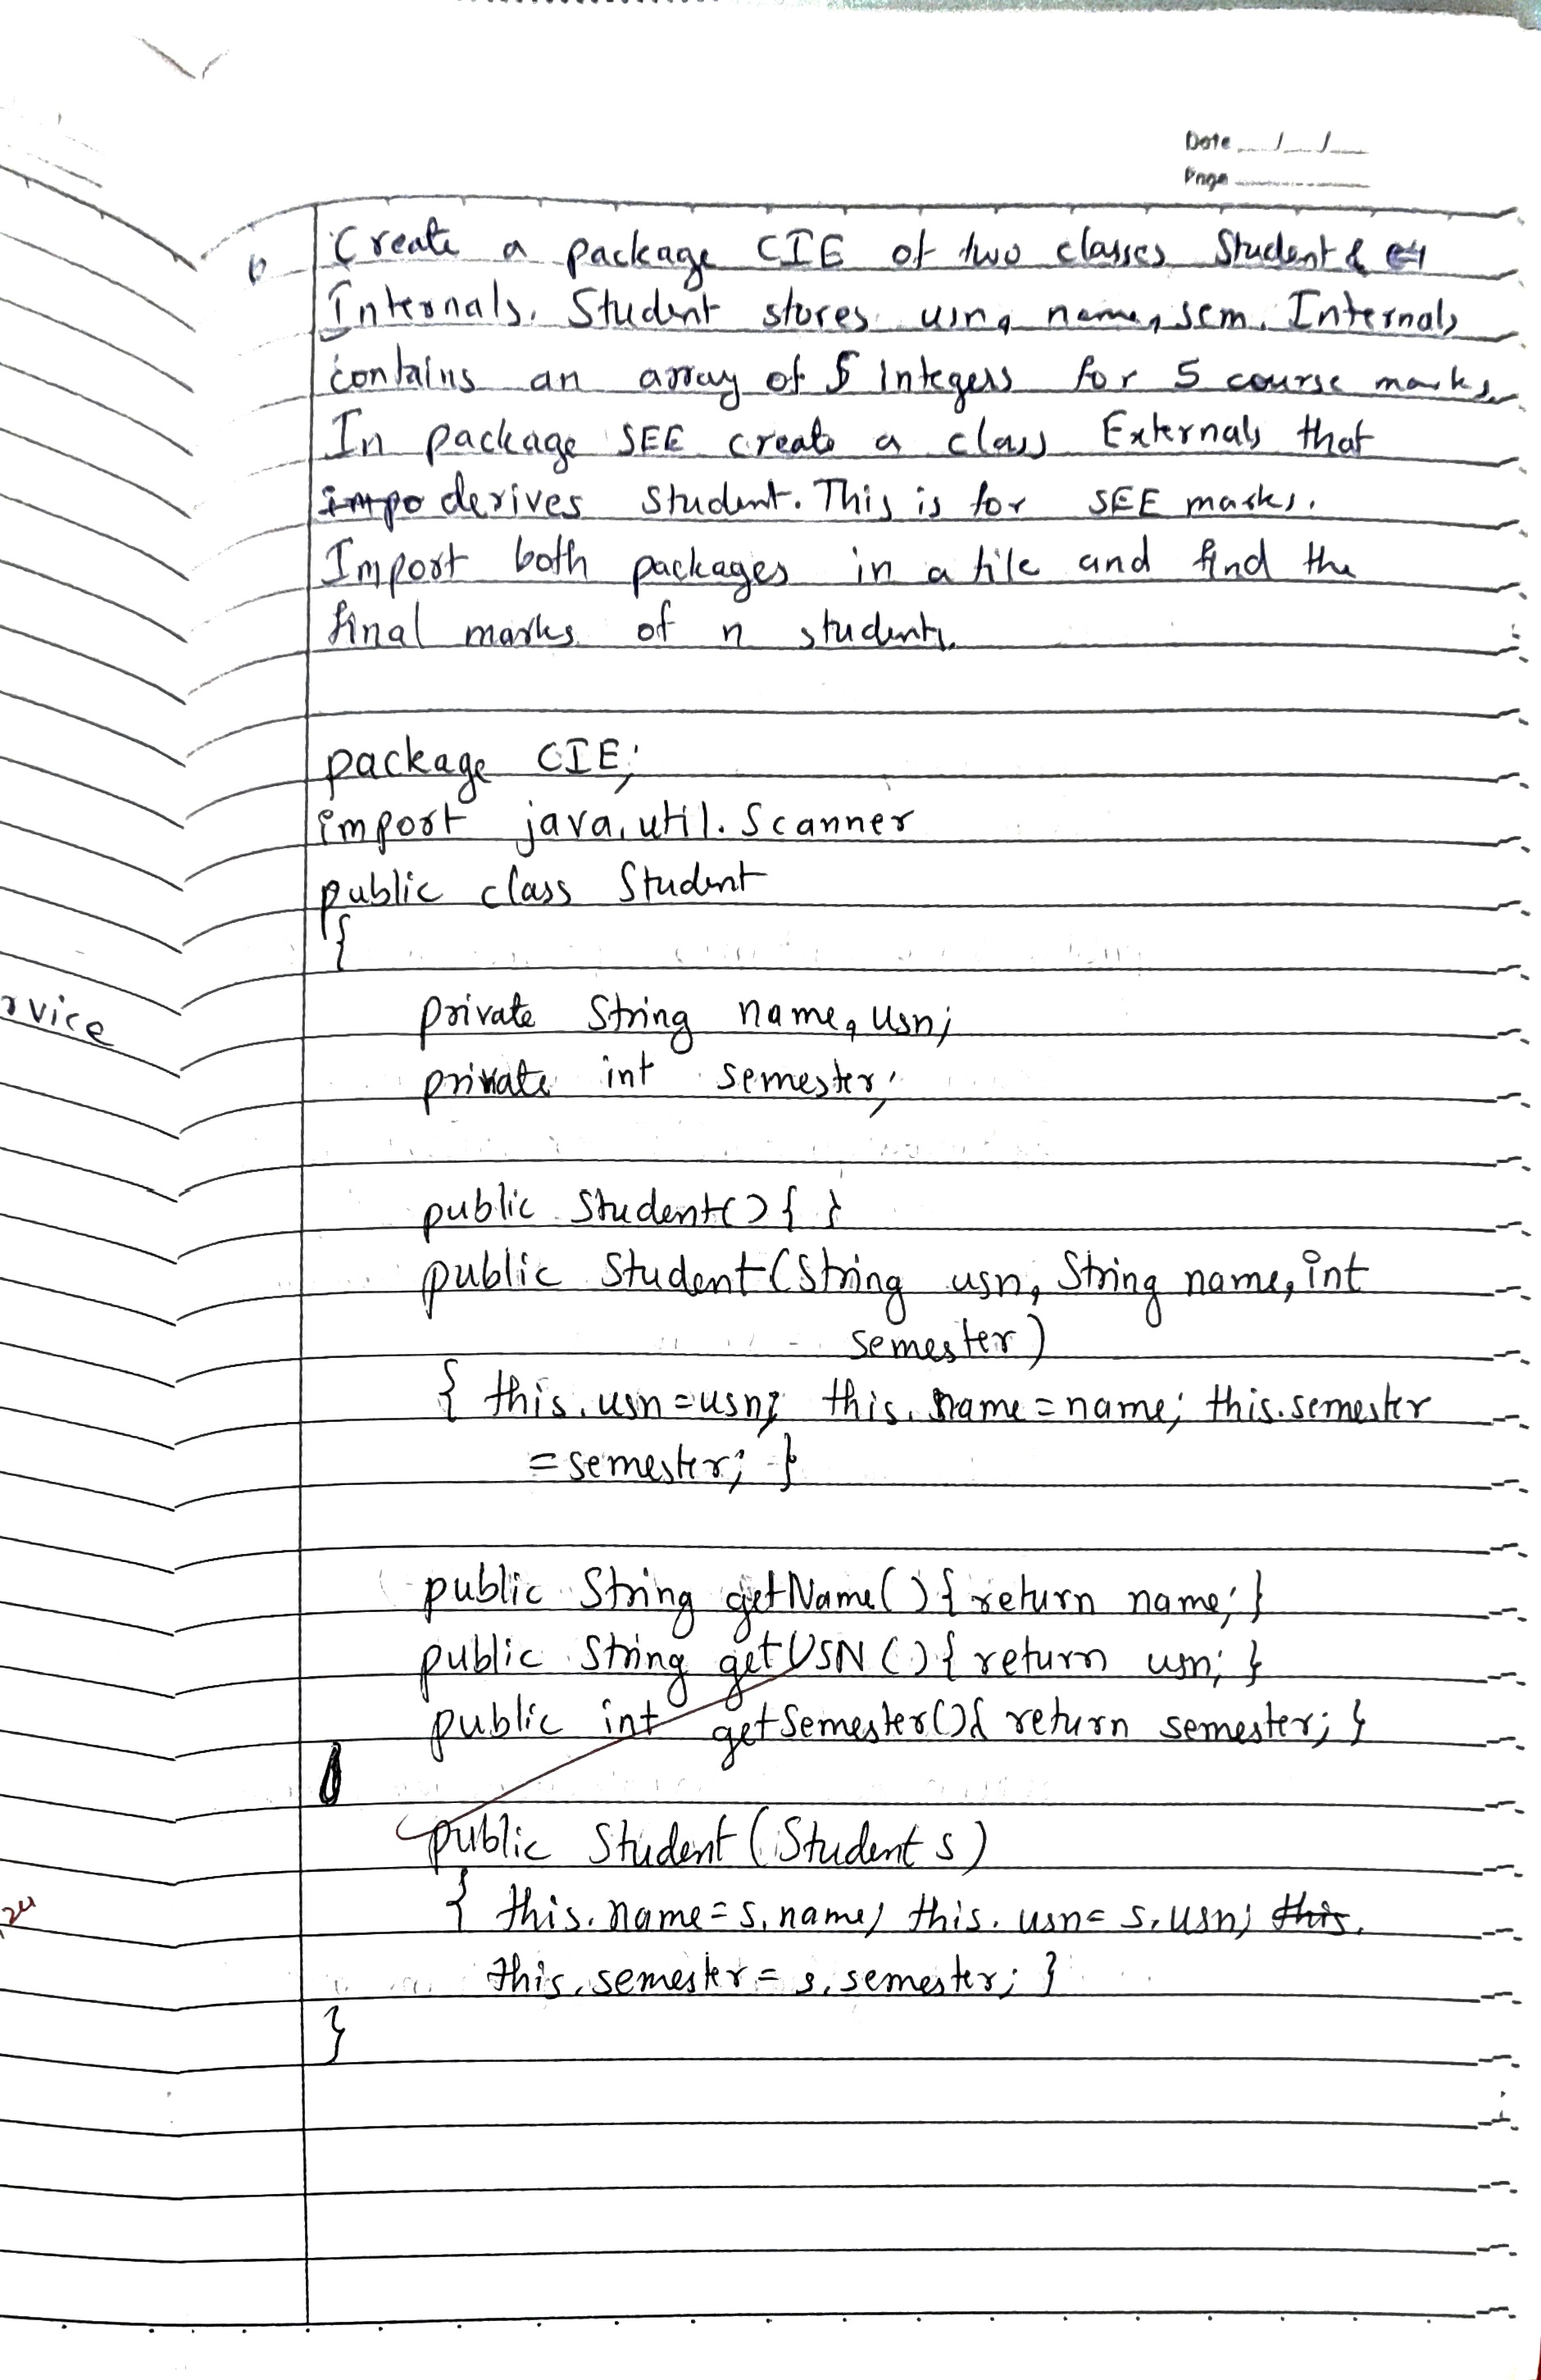 Date __/__/__
Page
6 Create a package CIE of two classes Student &
Internals. Student stores usn, name, sem. Internals
contains an array of 5 Integers for 5 course marks.
In package SEE create a class Externals that
impo derives Student. This is for SEE marks.
Import both packages in a file and find the
final marks of n students.
package CIE;
import java.util.Scanner
public class Student
{
rvice
private String name, usn;
private int semester;
public Student(){ }
public Student(String usn, String name, int
semester)
{ this.usn=usn; this.name=name; this.semester
=semester; }
public String getName(){ return name; }
public String getUSN(){ return usn; }
public int getSemester(){ return semester; }
public Student (Student s)
{ this.name=s.name; this.usn= s.usn; this.
this.semester= s.semester; }
}
24